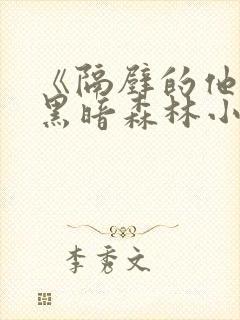 《隔壁的他
黑暗森林小
李秀文